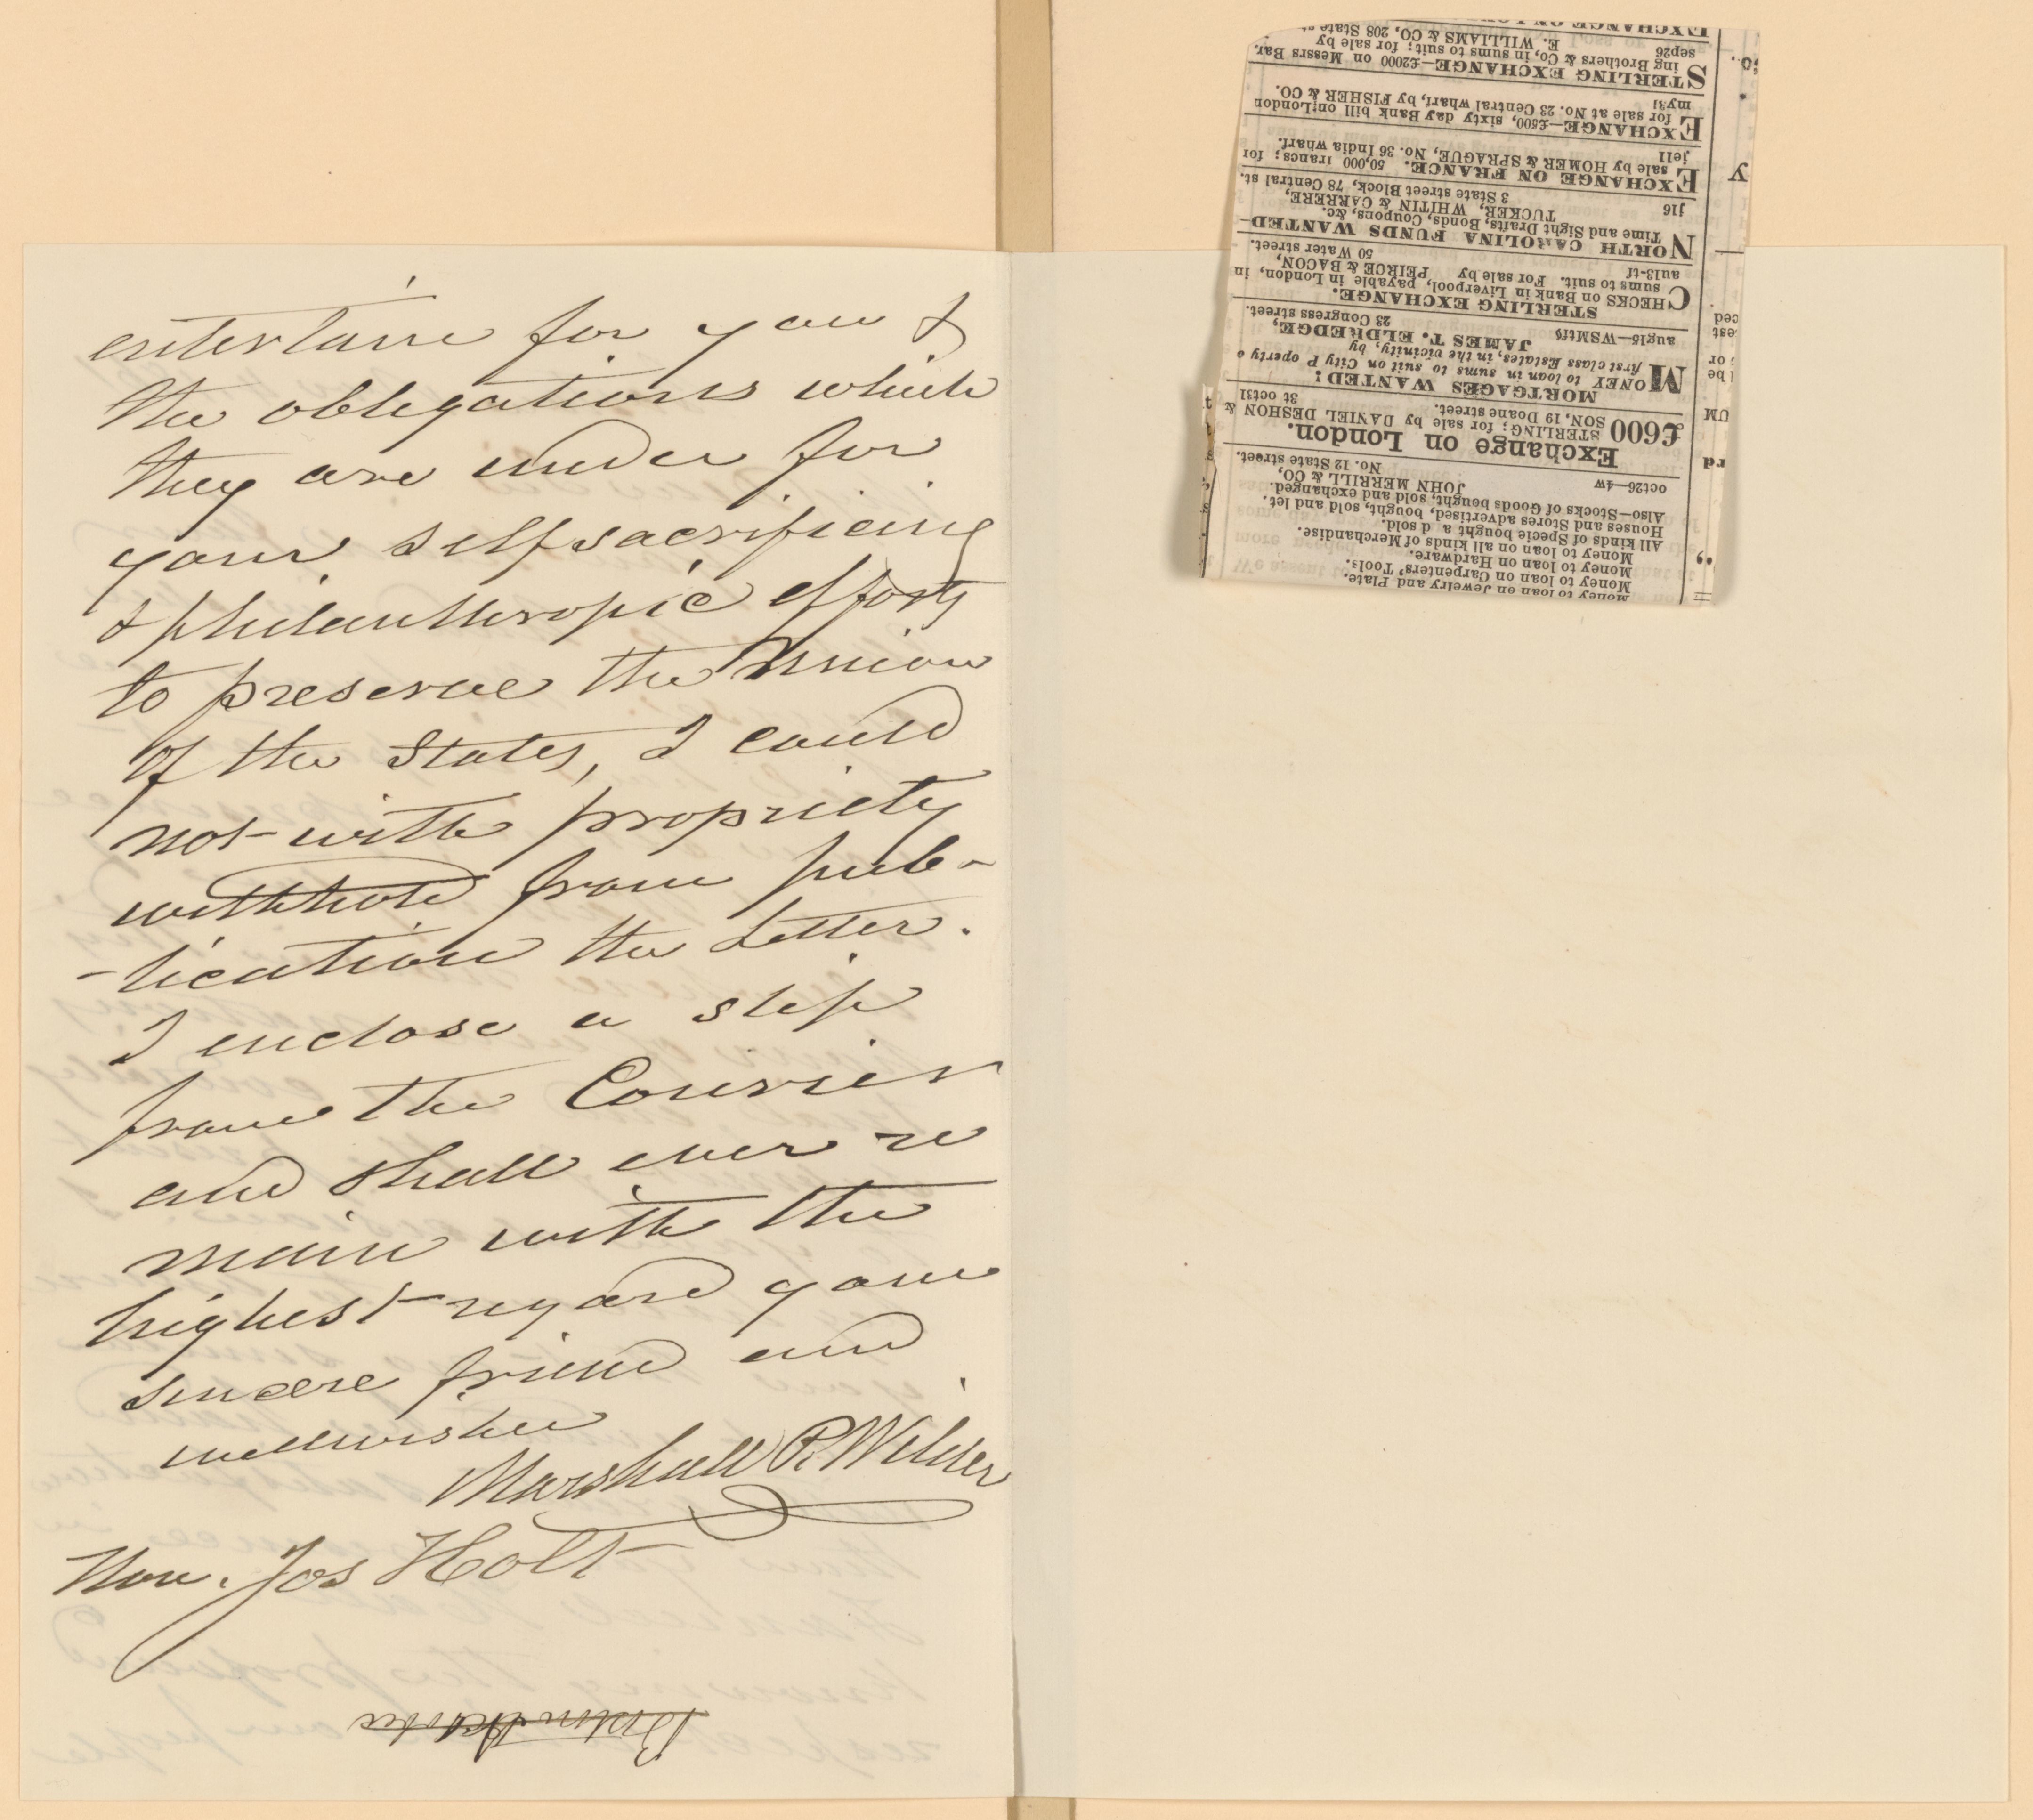 entertain for you &
the obligations which
they are under for
your self sacrificing
& philanthropic efforts
to preserve the Union
of the States, I could
not with propriety
withhold from pub-
-lication the Letter.
I enclose a slip
from the Courier
and shall ever re
main with the
highest regard your
sincere friend and
wellwisher
Marshall P. Wilder
Hon. Jos Holt
Money to loan on Jewelry and Plate.
Money to loan on Carpenters' Tools.
Money to loan on Hardware.
Money to loan on all kinds of Merchandise.
All kinds of Specie bought a d sold.
Houses and Stores advertised, bought, sold and let.
Also—Stocks of Goods bought, sold and exchanged.
JOHN MERRILL & CO,
oct26—4w No. 12 State street.
Exchange on London.
£600 STERLING; for sale by DANIEL DESHON &
SON, 19 Doane street. 3t oct31
MORTGAGES WANTED!
MONEY to loan in sums to suit on City P operty o
first class Estates, in the vicinity, by
JAMES T. ELDREDGE,
aug15—WSMtf§ 23 Congress street.
STERLING EXCHANGE.
CHECKS on Bank in Liverpool, payable in London, in
sums to suit. For sale by PEIRCE & BACON,
au13-tf 50 Water street.
NORTH CAROLINA FUNDS WANTED—
Time and Sight Drafts, Bonds, Coupons, &c.
TUCKER, WHITIN & CARRERE,
j16 3 State street Block, 78 Central st.
EXCHANGE ON FRANCE. 50,000 francs; for
sale by HOMER & SPRAGUE, No. 36 India wharf.
je11
EXCHANGE—£500, sixty day Bank bill on London
for sale at No. 23 Central wharf, by FISHER & CO.
my31
STERLING EXCHANGE—£2000 on Messrs Bar
ing Brothers & Co, in sums to suit; for sale by
sep26 E. WILLIAMS & CO, 208 State st